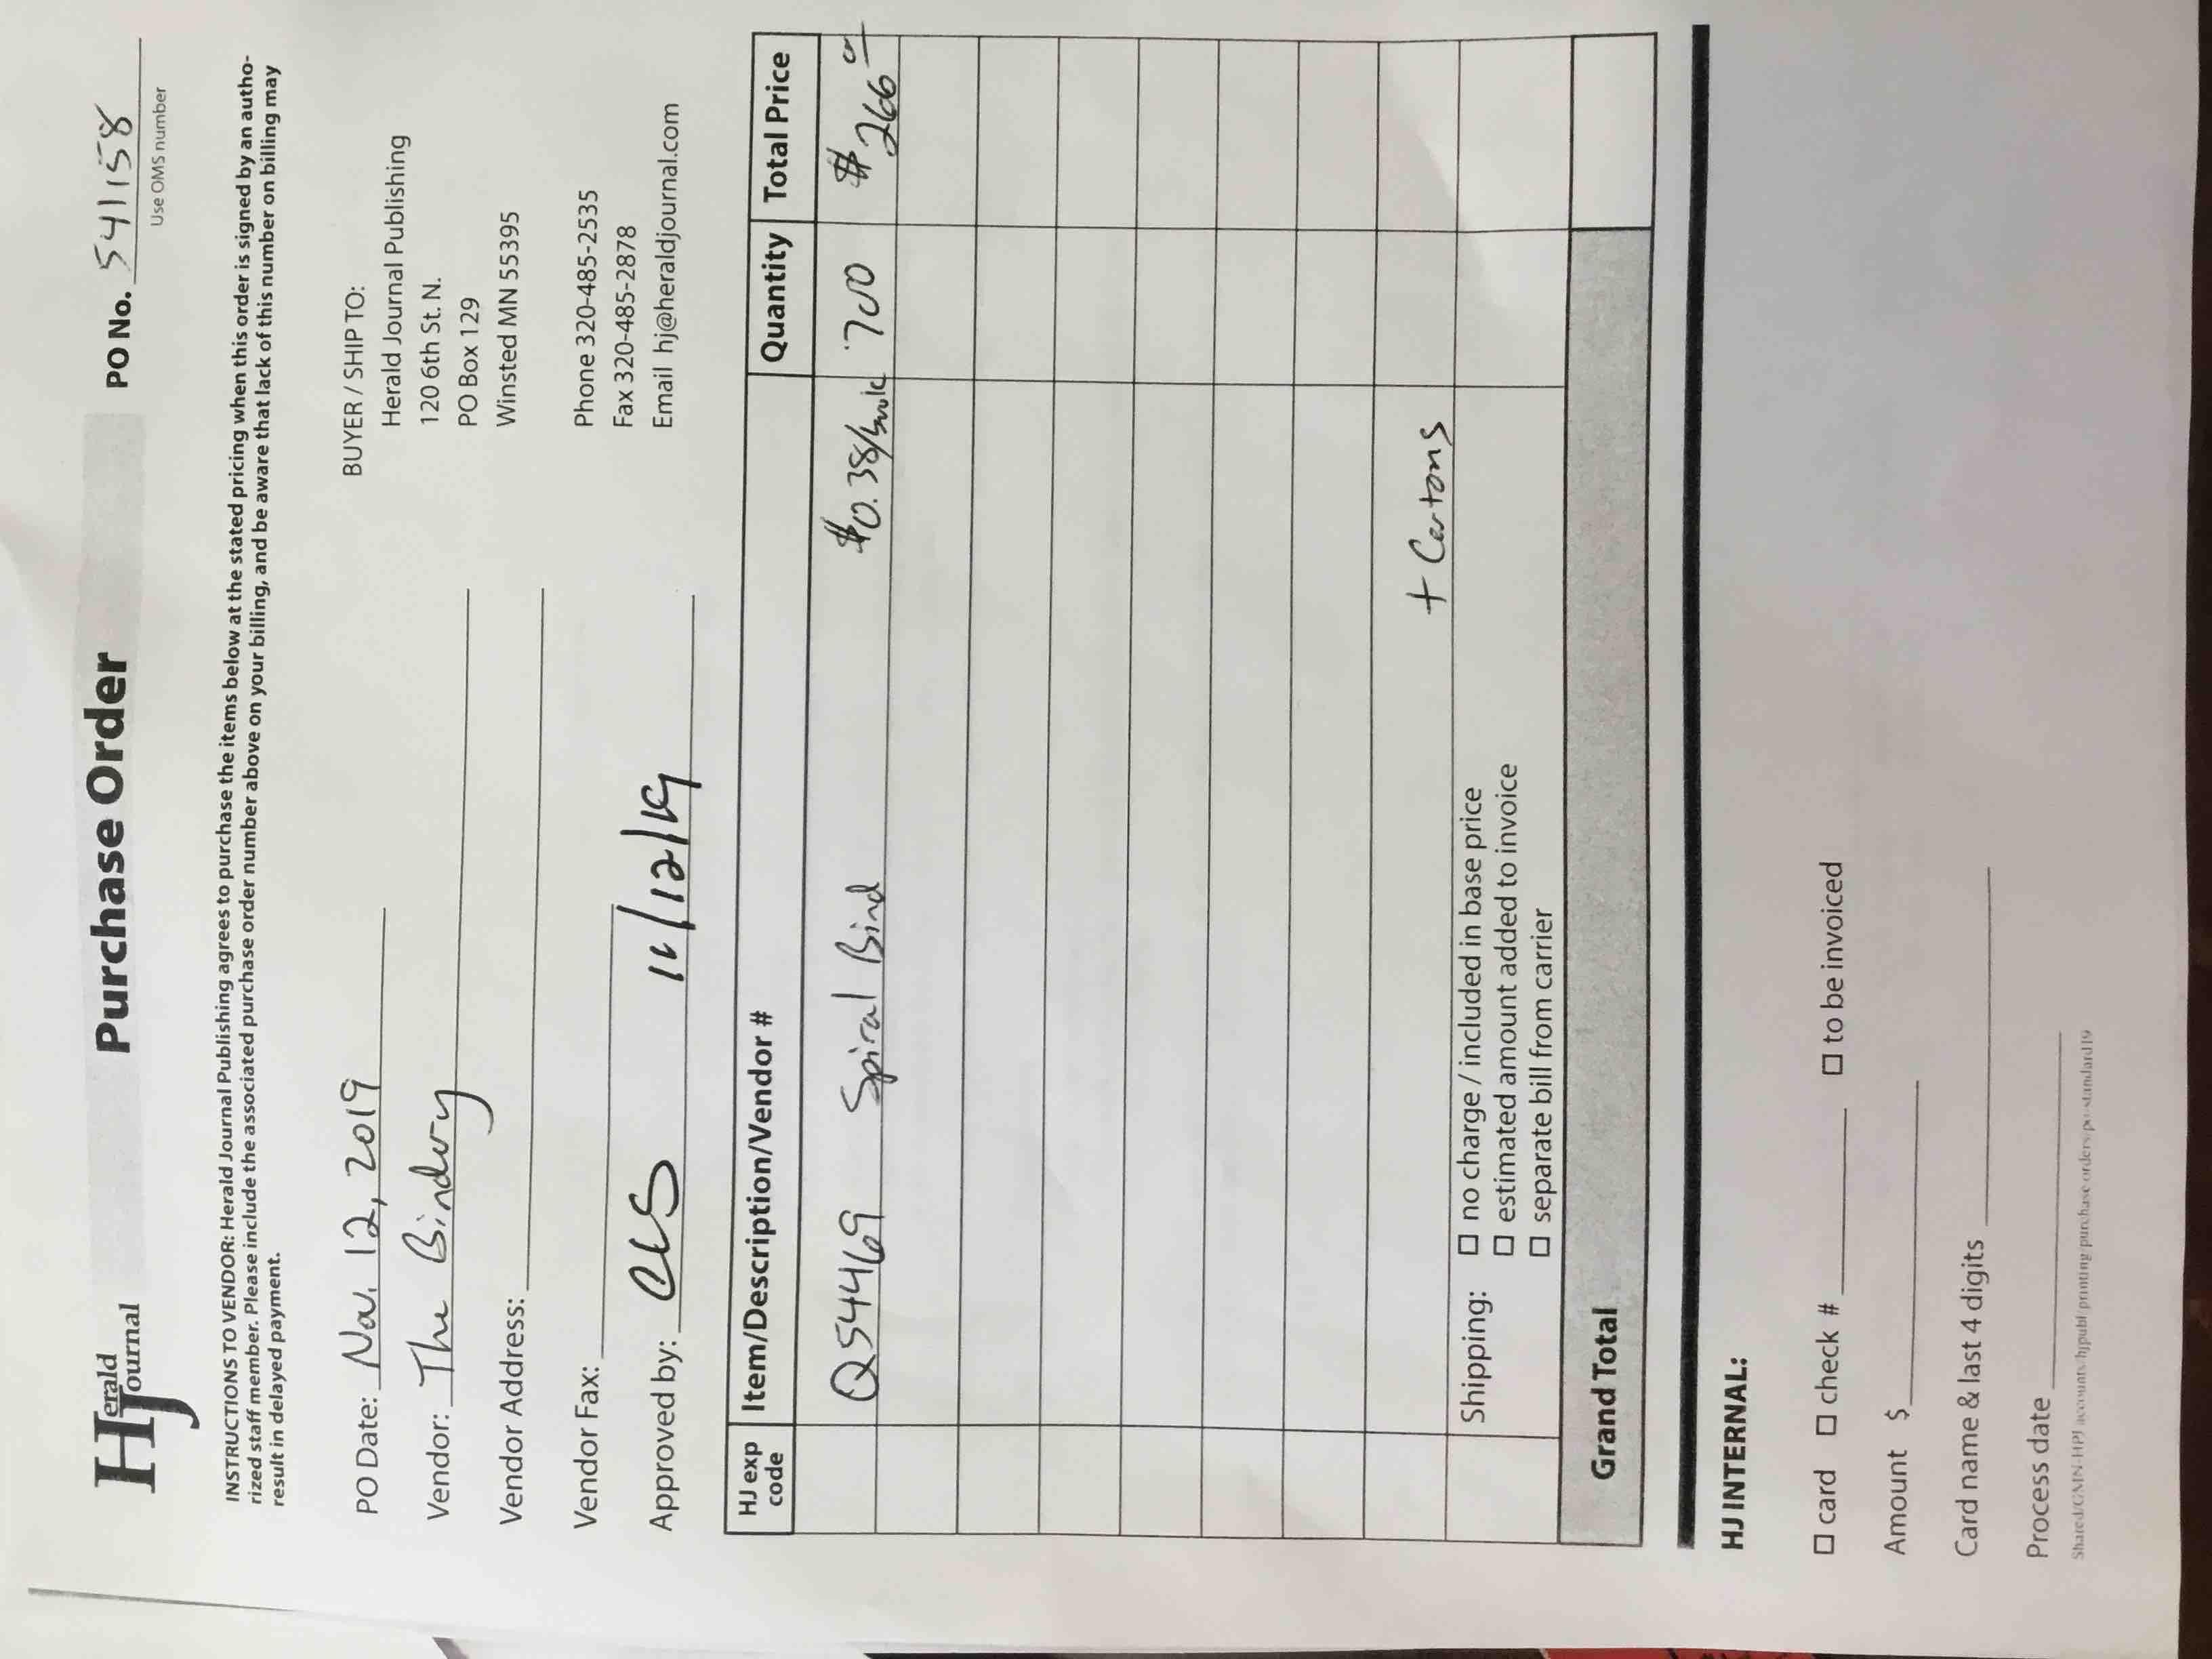 Herald Journal
Purchase Order
PO No. 541158
Use OMS number
INSTRUCTIONS TO VENDOR: Herald Journal Publishing agrees to purchase the items below at the stated pricing when this order is signed by an autho-
rized staff member. Please include the associated purchase order number above on your billing, and be aware that lack of this number on billing may
result in delayed payment.
PO Date: Nov. 12, 2019
Vendor: The Bindery
Vendor Address:
Vendor Fax:
Approved by: 11/12/19
BUYER / SHIP TO:
Herald Journal Publishing
120 6th St. N.
PO Box 129
Winsted MN 55395
Phone 320-485-2535
Fax 320-485-2878
Email hj@heraldjournal.com
HJ exp code Item/Description/Vendor # Quantity Total Price
Q54469 Spiral Bind $0.38/book 700 $266
+ Cartons
Shipping: ☐ no charge / included in base price
☐ estimated amount added to invoice
☐ separate bill from carrier
Grand Total
HJ INTERNAL:
☐ card ☐ check # ☐ to be invoiced
Amount $
Card name & last 4 digits
Process date